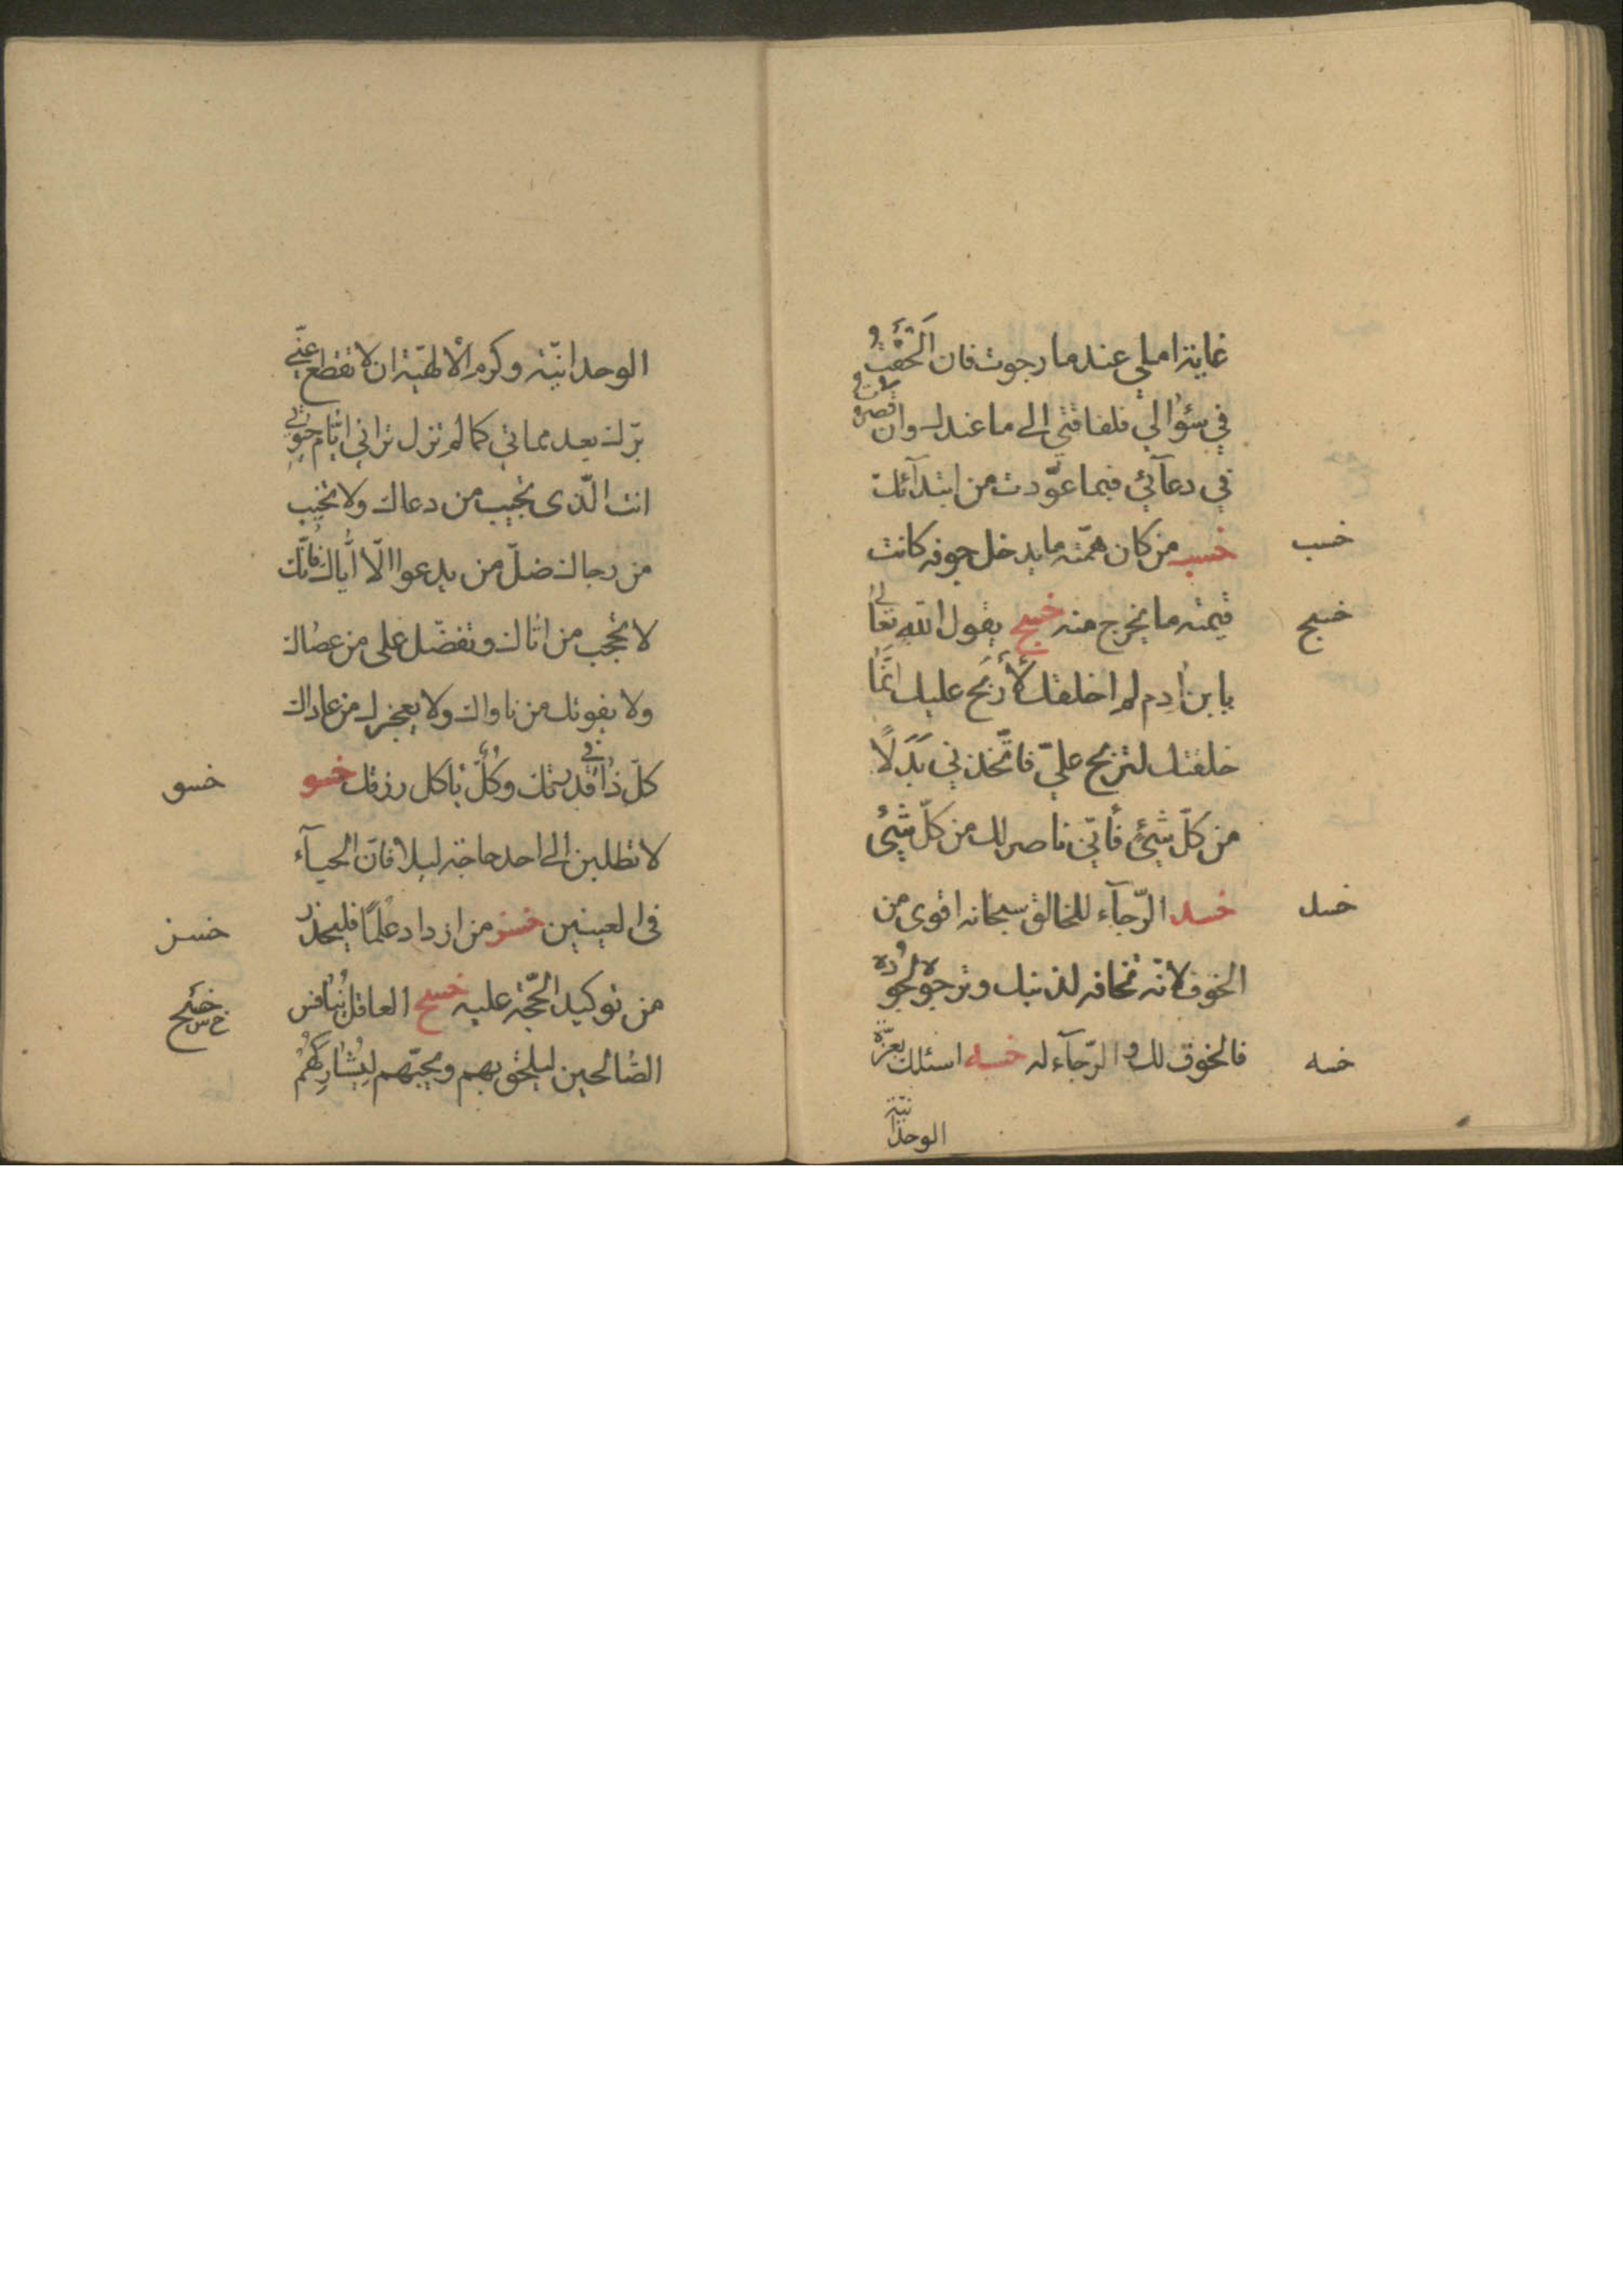 غاية املي عند ما رجوت فان اَلْحَفْتُ
في سؤالي فلفاقتي الى ما عندك وان قصرت
في دعآئي فبما عوّدت من ابتدآئك
خسب
خسب من كان همّته ما يدخل جوفه كانت
خسج
قيمته ما يخرج منه خسج يقول الله تعالى
يا بن ادم لم اخلقك لأربح عليك انّما
خلقتك لتربح عليّ فاتّخذني بَدَلًا
من كلّ شيئ فأنّي ناصر لك من كلّ شيئ
خسد
خسد الرّجآء للخالق سبحانه اقوى من
الخوف لانّه تخافه لذنبك وترجوه لجُوده
خسه
فالخوف لك والرّجآء له خسه اسئلك بعزّة
الوحدانيّة
الوحدانيّة وكرم الألهيّة ان لا تقطع عنّي
برّك بعد مماتي كما لم تزل تراني ايّام حيوتي
انت الّذى تجيب من دعاك ولا تخيب
من رجاك ضلّ من يدعوا الّا ايّاك فانّك
لا تحجب من اتاك وتفضّل على من عصاك
ولا يفوتك من ناواك ولا يعجزك من عاداك
خسو
كلّ في قدرتك وكُلٌّ يأكل رزقك خسو
لا تطلبن الى احد حاجة ليلا فانّ الحيآء
خسز
فى العينين خسز من ازداد علمًا فليحذر
خسح
خ س ح
من توكيد الحجّة عليه خسح العاقل يُنافس
الصّالحين ليلحق بهم ويحبّهم لِيُشارِكَهُمْ